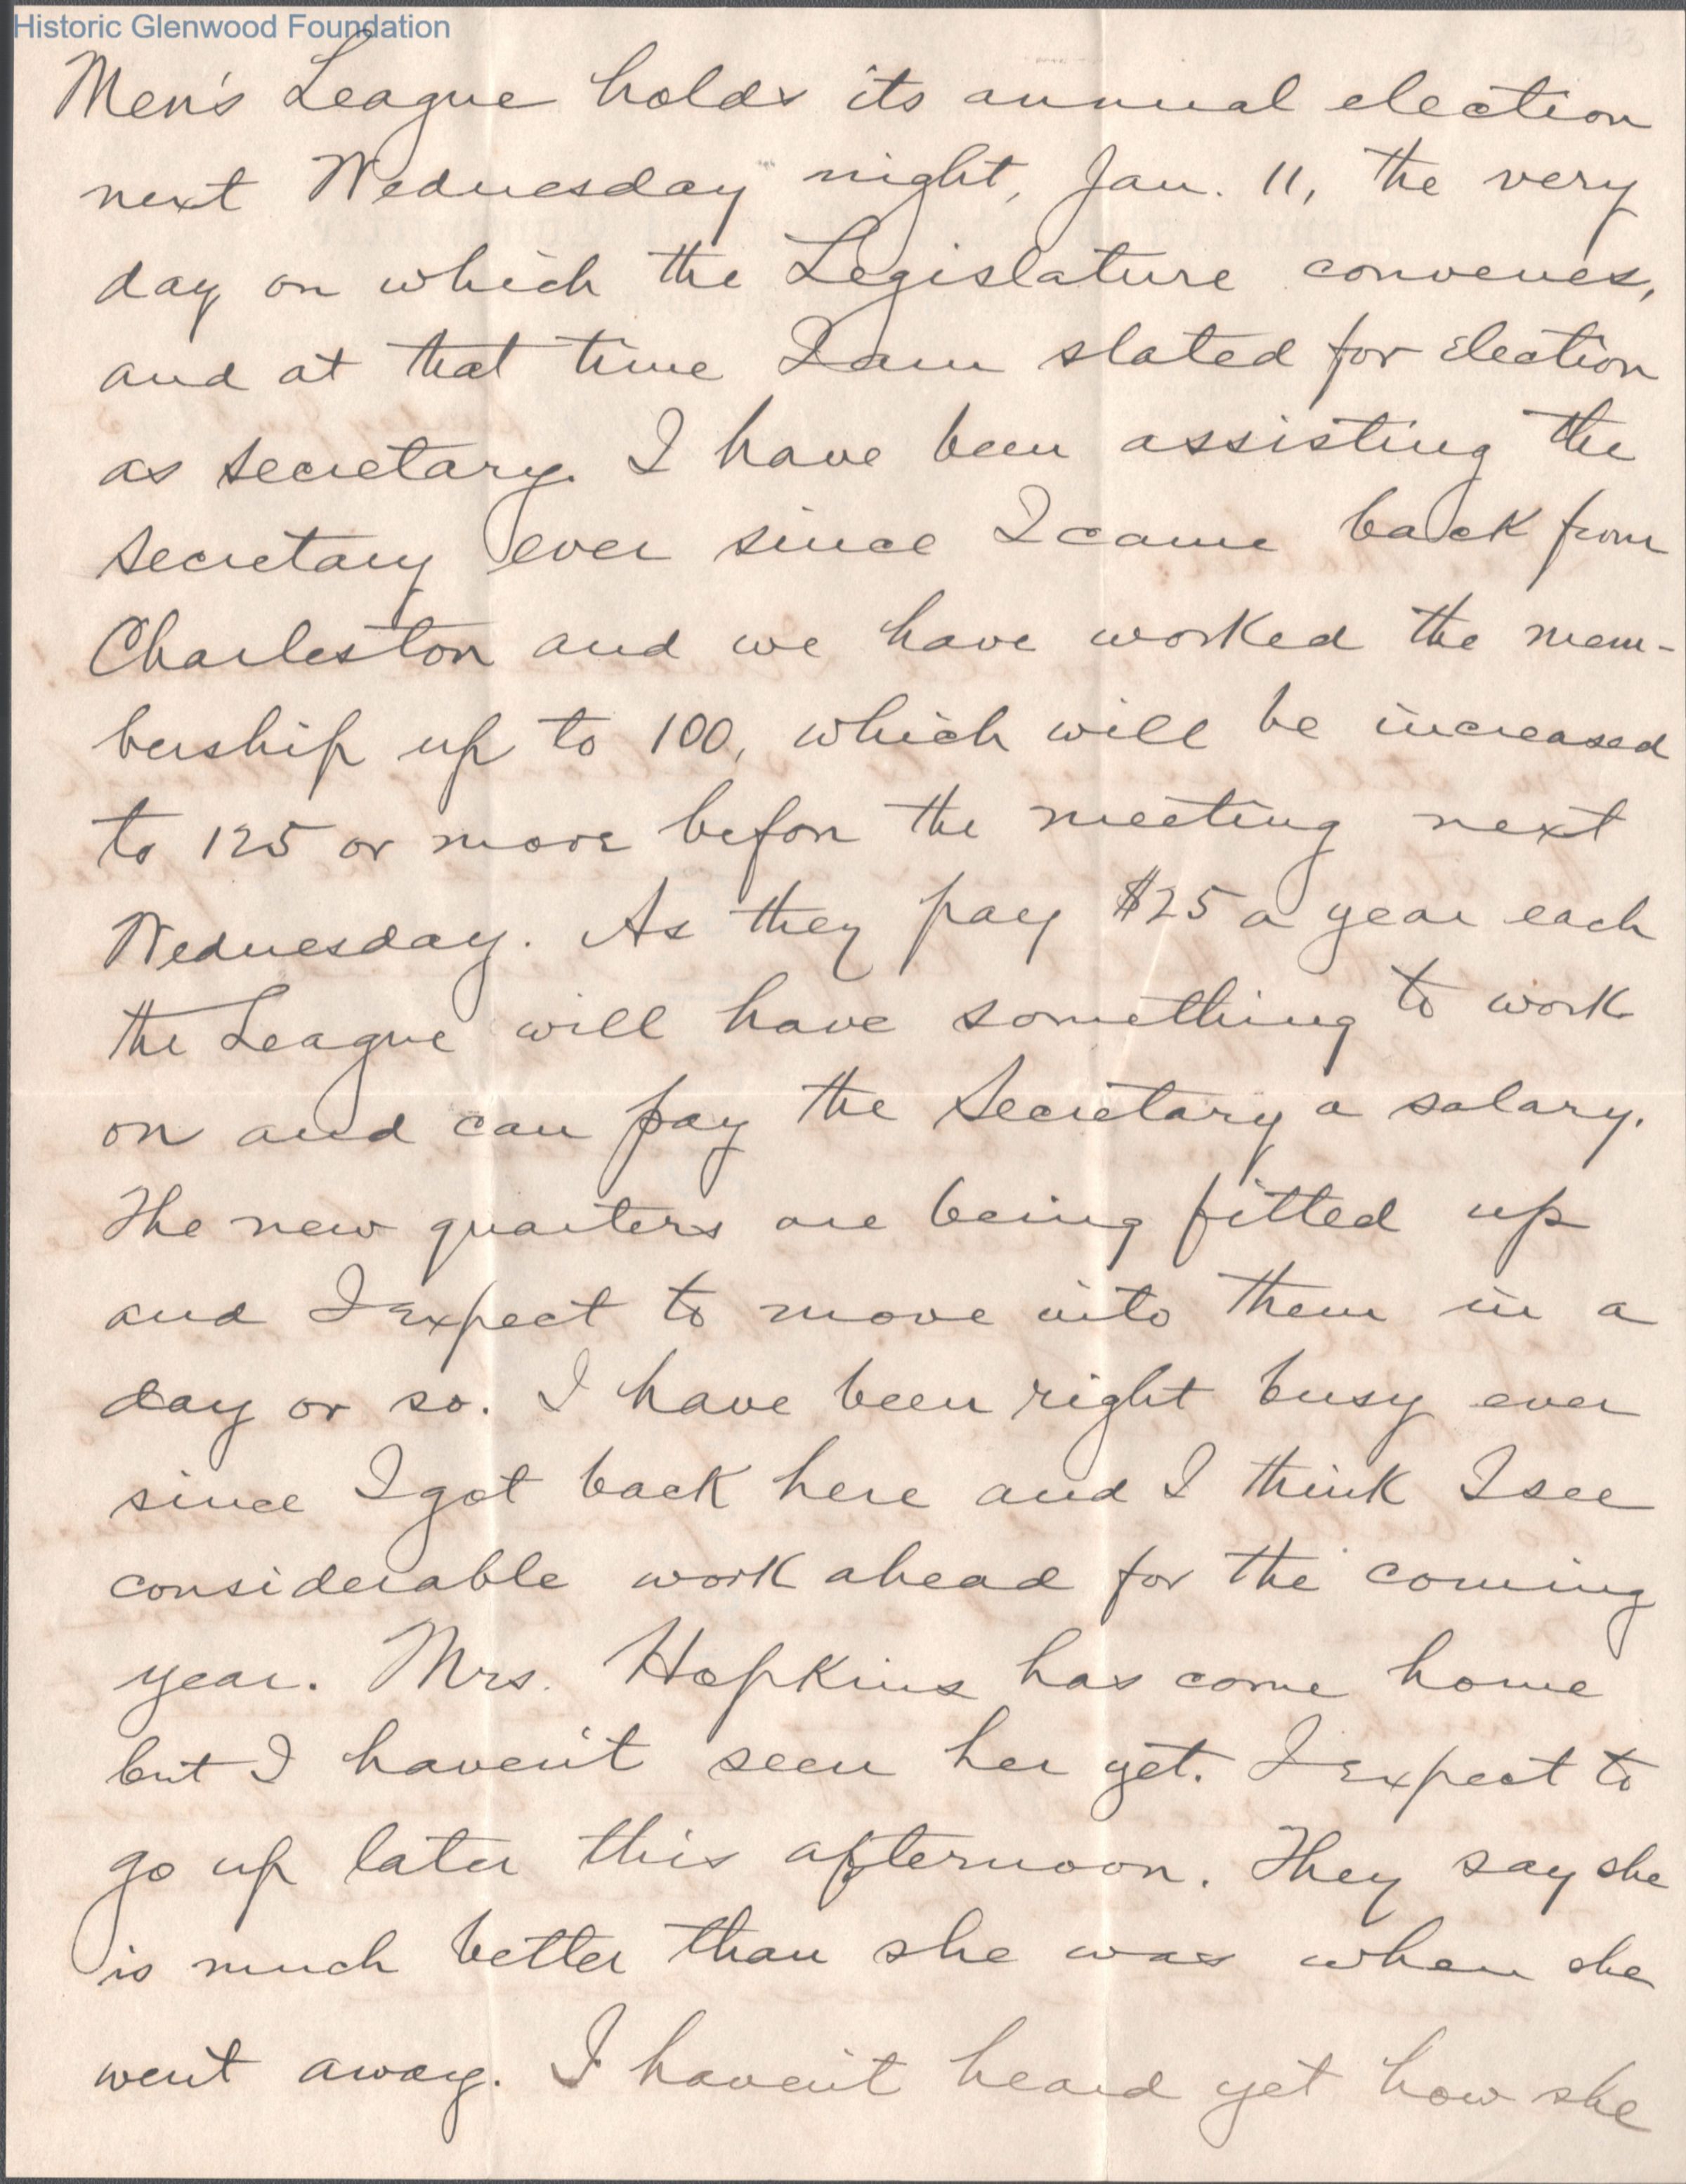 Historic Glenwood Foundation
Men's League holds its annual election
next Wednesday night, Jan. 11, the very
day on which the Legislature convenes,
and at that time I am slated for election
as secretary. I have been assisting the
secretary ever since I came back from
Charleston and we have worked the mem-
bership up to 100, which will be increased
to 125 or more before the meeting next
Wednesday. As they pay $25 a year each
the League will have something to work
on and can pay the Secretary a salary.
The new quarters are being fitted up
and I expect to move into them in a
day or so. I have been right busy ever
since I got back here and I think I see
considerable work ahead for the coming
year. Mrs. Hopkins has come home
but I haven't seen her yet. I expect to
go up later this afternoon. They say she
is much better than she was when she
went away. I haven't heard yet how she